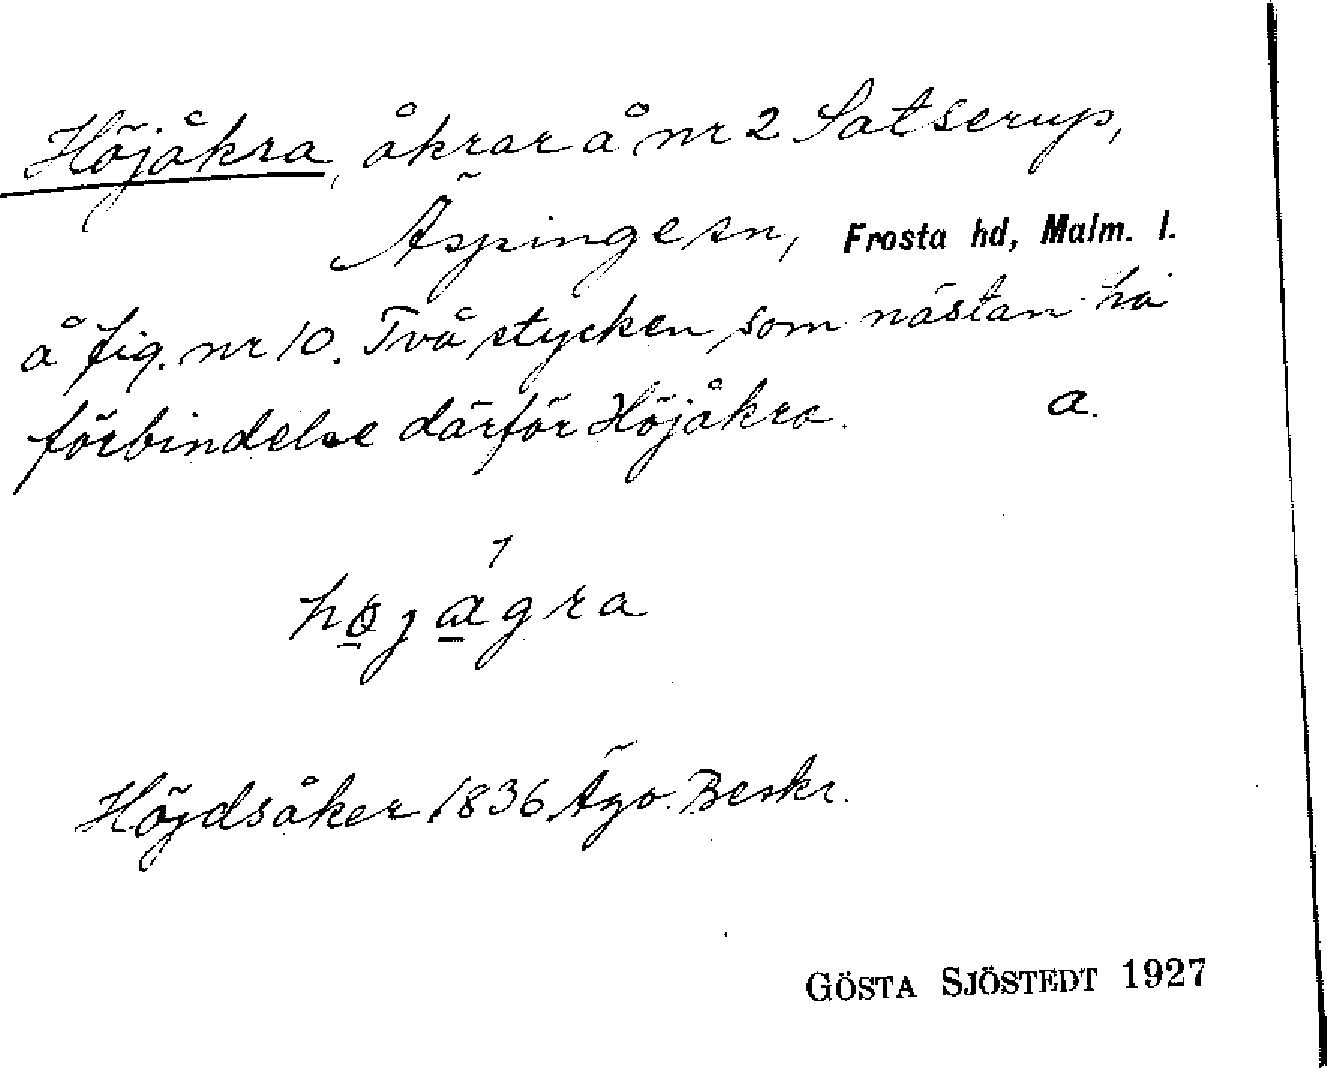 Höjåkra, åkrar å nr 2 Satserup,
Äspinge sn, Frosta hd, Malm. l.
å fig. nr 10. Två stycken, som nästan ha
förbindelse därför Höjåkra. a.
högågra
Höjdsåker 1836 Ägo. Beskr.
GÖSTA SJÖSTEDT 1927